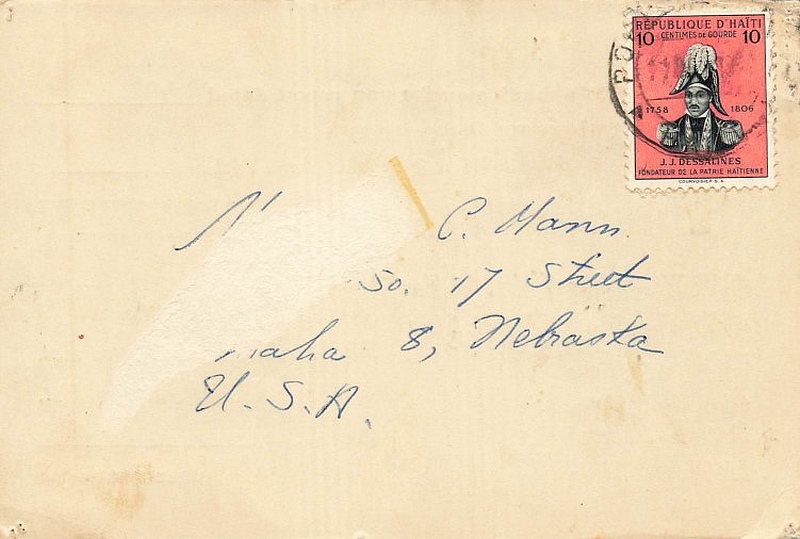 RÉPUBLIQUE D'HAÏTI
10 CENTIMES DE GOURDE 10
1758 1806
J.J. DESSALINES
FONDATEUR DE LA PATRIE HAÏTIENNE
COURVOISIER S.A.
PO
C. Mann
So. 17 Street
aha 8, Nebraska
U.S.A.